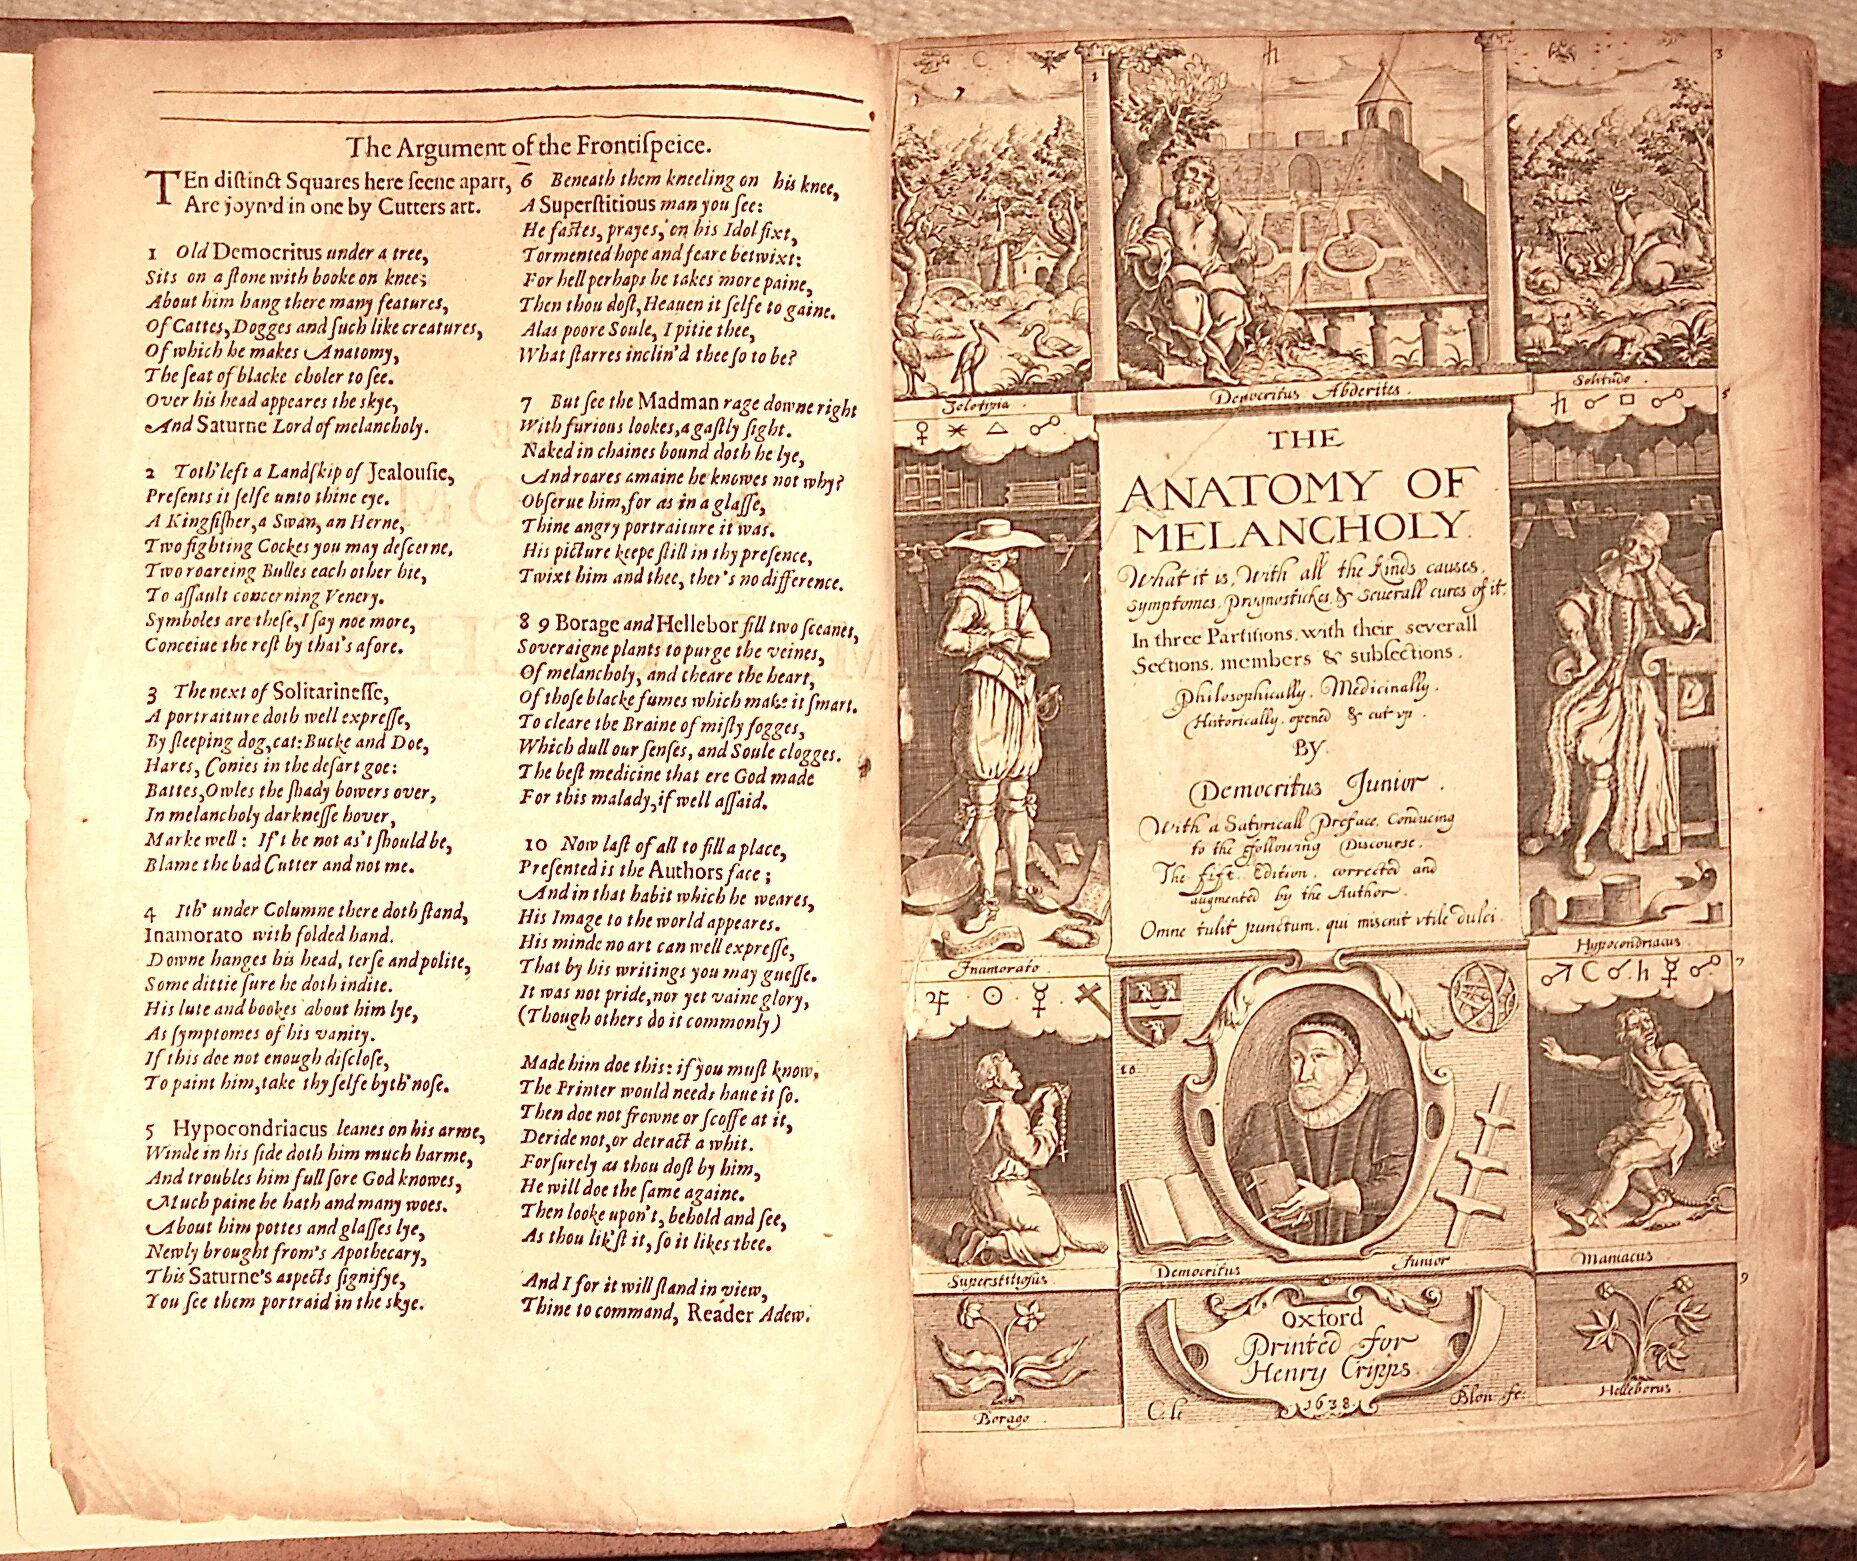 The Argument of the Frontiſpeice.
TEn diſtinct Squares here ſeene apart,
Are joyn'd in one by Cutters art.
1 Old Democritus under a tree,
Sits on a ſtone with booke on knee;
About him hang there many features,
Of Cattes, Dogges and ſuch like creatures,
Of which he makes Anatomy,
The ſeat of blacke choler to ſee.
Over his head appeares the skye,
And Saturne Lord of melancholy.
2 Toth' left a Landſkip of Jealouſie,
Preſents it ſelfe unto thine eye.
A Kingfiſher, a Swan, an Herne,
Two fighting Cockes you may deſcerne,
Two roareing Bulles each other hie,
To aſſault concerning Venery.
Symboles are theſe, I ſay noe more,
Conceiue the reſt by that's afore.
3 The next of Solitarineſſe,
A portraiture doth well expreſſe,
By ſleeping dog, cat: Bucke and Doe,
Hares, Conies in the deſart goe:
Battes, Owles the ſhady bowers over,
In melancholy darkneſſe hover,
Marke well: If't be not as't ſhould be,
Blame the bad Cutter and not me.
4 Ith' under Columne there doth ſtand,
Inamorato with folded hand.
Downe hanges his head, terſe and polite,
Some dittie ſure he doth indite.
His lute and bookes about him lye,
As ſymptomes of his vanity.
If this doe not enough diſcloſe,
To paint him, take thy ſelfe byth' noſe.
5 Hypocondriacus leanes on his arme,
Winde in his ſide doth him much harme,
And troubles him full ſore God knowes,
Much paine he hath and many woes.
About him pottes and glaſſes lye,
Newly brought from's Apothecary,
This Saturne's aspects ſignifye,
You ſee them portraid in the skye.
6 Beneath them kneeling on his knee,
A Superſtitious man you ſee:
He faſtes, prayes, on his Idol fixt,
Tormented hope and feare betwixt:
For hell perhaps he takes more paine,
Then thou doſt, Heauen it ſelfe to gaine.
Alas poore Soule, I pitie thee,
What ſtarres inclin'd thee ſo to be?
7 But ſee the Madman rage downe right
With furious lookes, a gaſtly ſight.
Naked in chaines bound doth he lye,
And roares amaine he knowes not why?
Obſerue him, for as in a glaſſe,
Thine angry portraiture it was.
His picture keepe ſtill in thy preſence,
Twixt him and thee, ther's no difference.
8 9 Borage and Hellebor fill two ſceanes,
Soveraigne plants to purge the veines,
Of melancholy, and cheare the heart,
Of thoſe blacke fumes which make it ſmart.
To cleare the Braine of miſty fogges,
Which dull our ſenſes, and Soule clogges.
The beſt medicine that ere God made
For this malady, if well aſſaid.
10 Now laſt of all to fill a place,
Preſented is the Authors face;
And in that habit which he weares,
His Image to the world appeares.
His minde no art can well expreſſe,
That by his writings you may gueſſe.
It was not pride, nor yet vaine glory,
(Though others do it commonly)
Made him doe this: if you muſt know,
The Printer would needs haue it ſo.
Then doe not frowne or ſcoffe at it,
Deride not, or detract a whit.
For ſurely as thou doſt by him,
He will doe the ſame againe.
Then looke upon't, behold and ſee,
As thou lik'ſt it, ſo it likes thee.
And I for it will ſtand in view,
Thine to command, Reader Adew.
1
3
Zelotipia
Democritus Abderites
Solitudo
5
THE
ANATOMY OF
MELANCHOLY.
What it is, With all the kinds causes,
symptomes, prognostickes, & seuerall cures of it.
In three Partitions, with their severall
Sections, members & subsections.
Philosophically, Medicinally,
Historically, opened & cut vp.
BY.
Democritus Junior.
With a Satyricall Preface, Conducing
to the following Discourse.
The fift Edition, corrected and
augmented by the Author.
Omne tulit punctum, qui miscuit vtile dulci.
Inamorato
Hypocondriacus
7
10
Superstitiosus
Democritus Junior
Maniacus
9
Borago
Oxford
Printed for
Henry Cripps.
1638
C. le Blon fe:
Helleborus